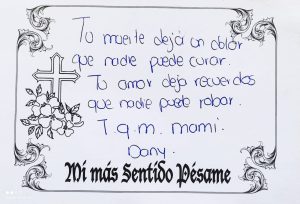 Tu muerte deja un dolor
que nadie puede curar.
Tu amor deja recuerdos
que nadie puede robar.
T.q.m. mami.
Dany.
Mi más Sentido Pésame